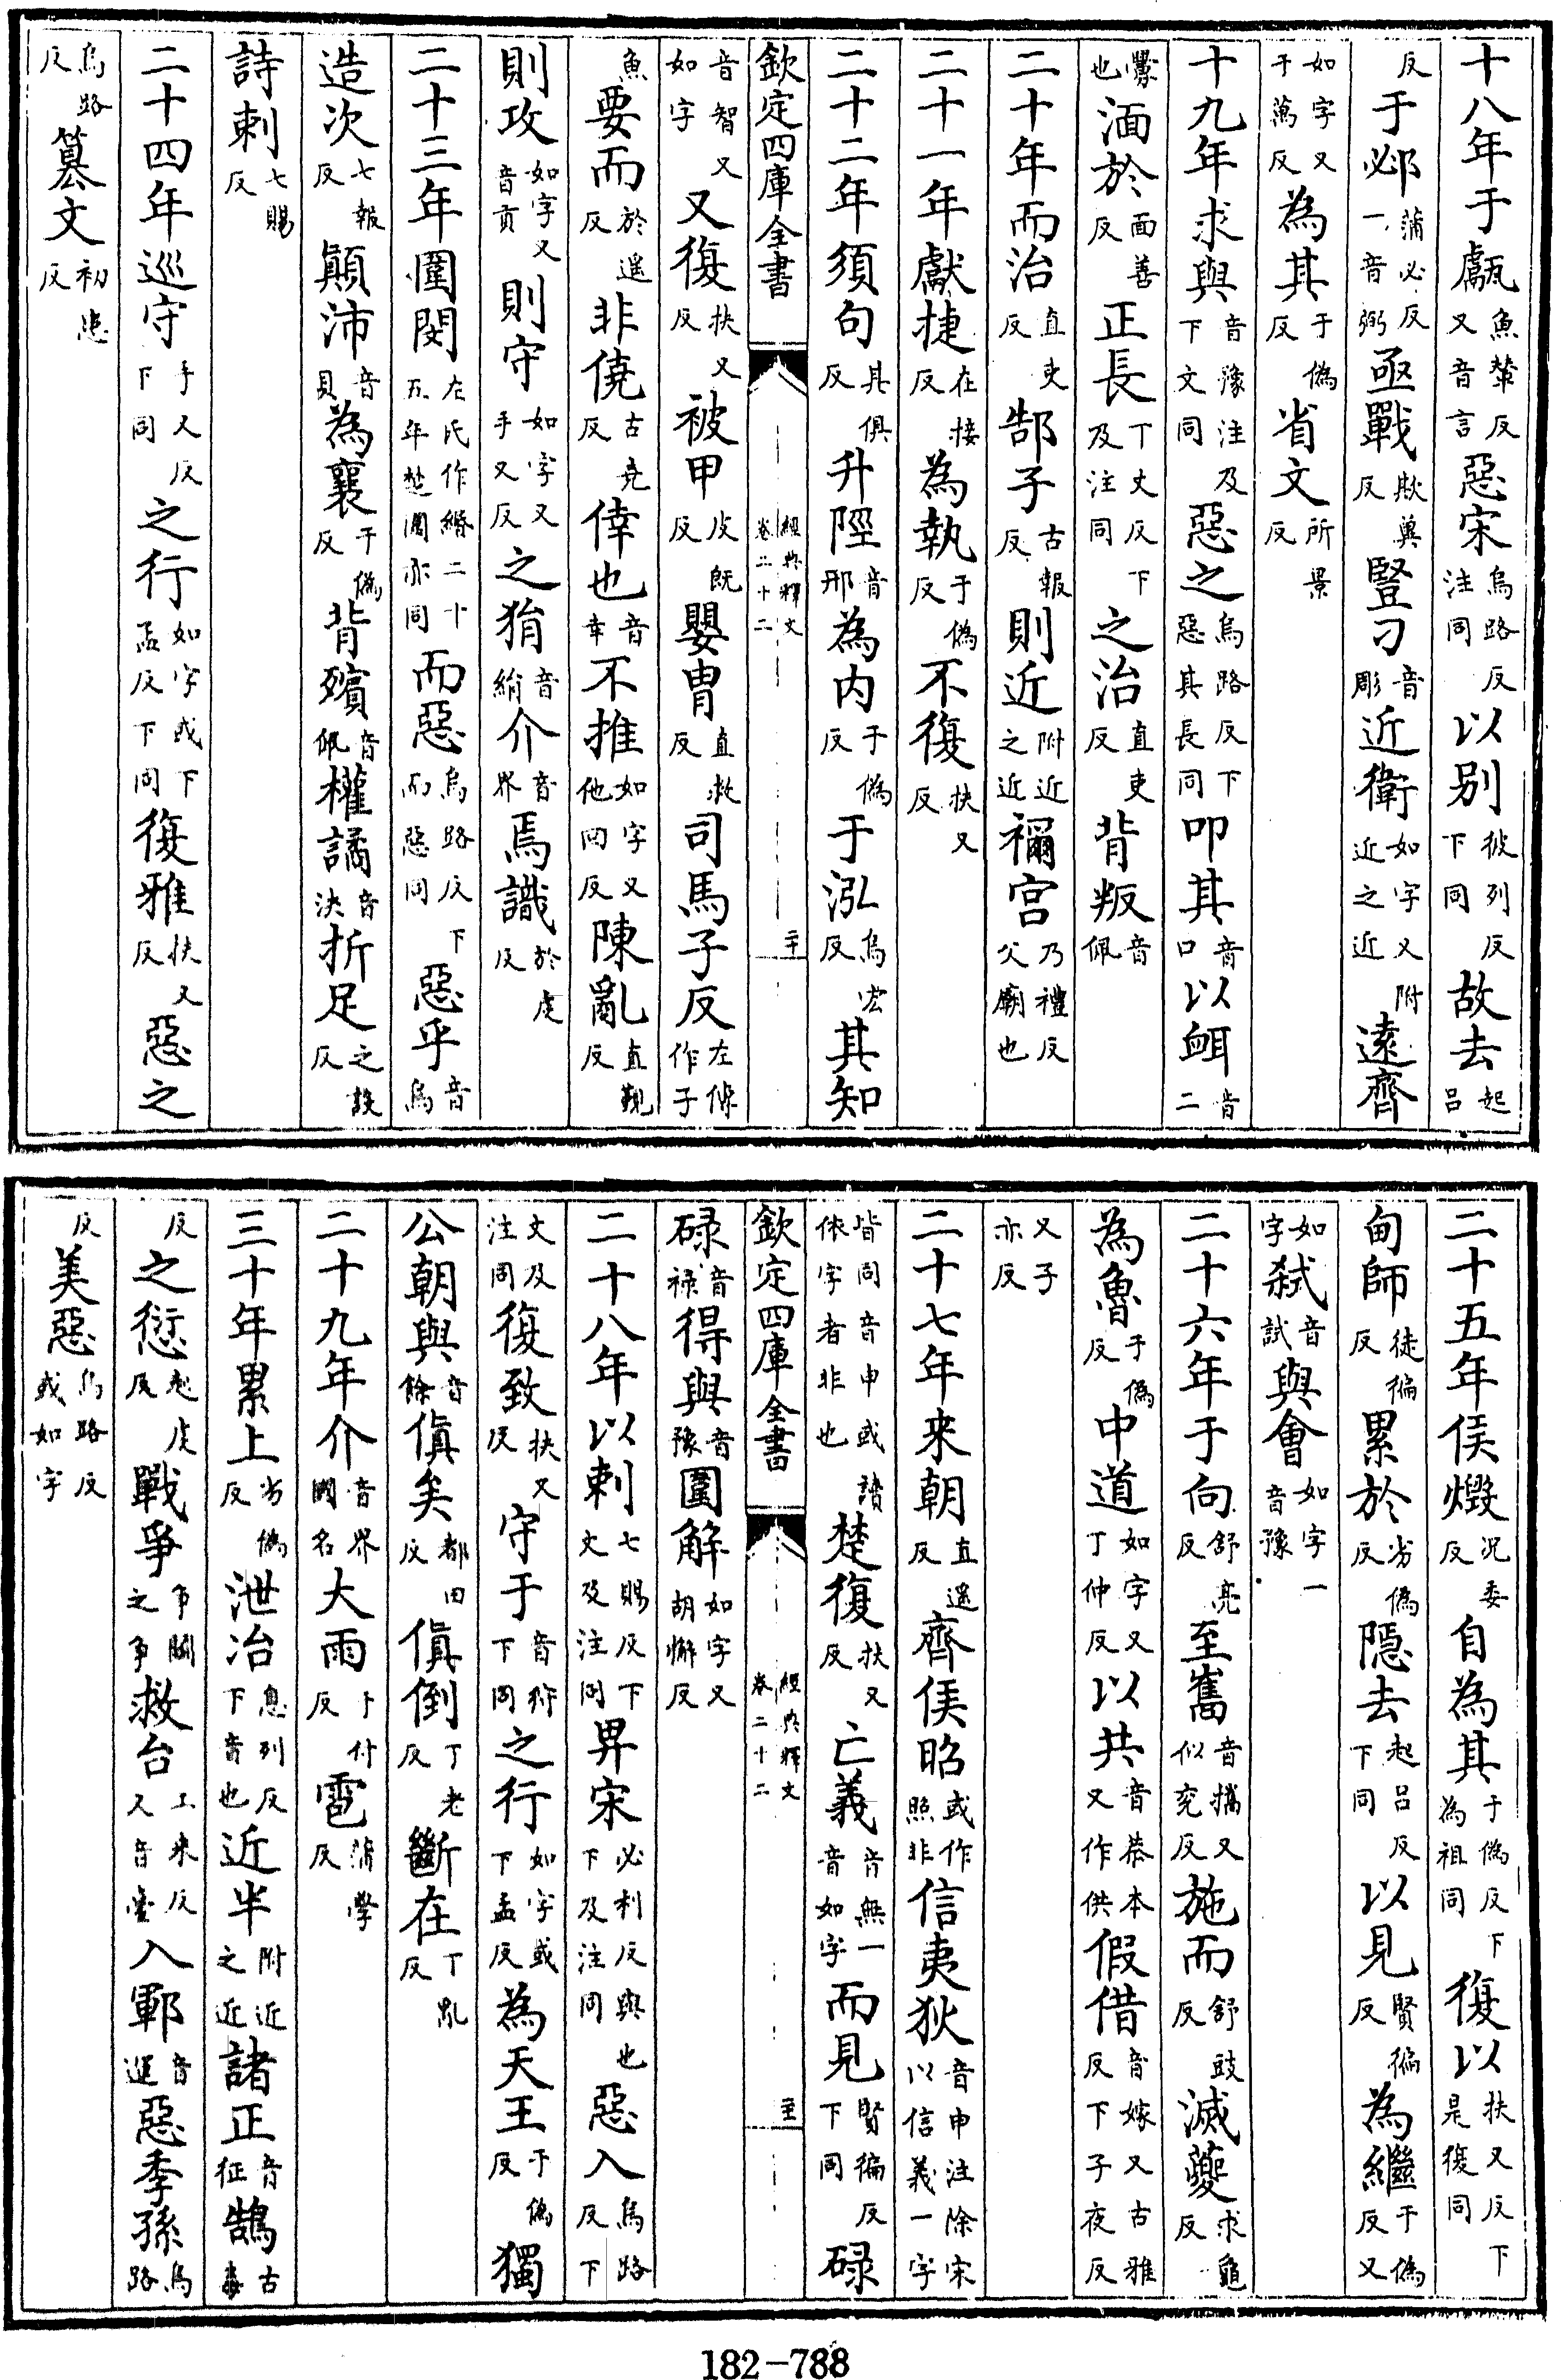 十八年于甗魚輦反又音言惡宋烏路反注同以别彼列反下同故去起吕
反于邲蒲必反一音弼亟戰欺冀反豎刁音彫近衛如字又附近之近遠齊
如字又于萬反為其于偽反省文所景反
十九年求與音豫注及下文同惡之烏路反下惡其長同叩其音口以衈音二
釁也湎於面善反正長丁丈反下及注同之治直吏反背叛音佩
二十年而治直吏反郜子古報反則近附近之近禰宫乃禮反父廟也
二十一年獻捷在接反為執于偽反不復扶又反
二十二年須句其俱反升陘音邢為内于偽反于泓烏宏反其知
欽定四庫全書 經典釋文卷二十二 二十
音智又如字又復扶又反被甲皮既反嬰胄直救反司馬子反左傳作子
魚要而於遥反非僥古堯反倖也音幸不推如字又他回反陳亂直覲反
則攻如字又音貢則守如字又手又反之狷音絹介音界焉識於虔反
二十三年圍閔左氏作緡二十五年楚圍亦同而惡烏路反下而惡同惡乎音烏
造次七報反顛沛音貝為襄于偽反背殯音佩權譎音決折足之設反
詩刺七賜反
二十四年巡守手又反下同之行如字或下孟反下同復雅扶又反惡之
烏路反篡文初患反
二十五年侯燬況委反自為其于偽反下為祖同復以扶又反下是復同
甸師徒徧反累於劣偽反隱去起吕反下同以見賢徧反為繼于偽反又
如字弑音試與會如字一音豫
二十六年于向舒亮反至巂音攜又似兖反施而舒豉反滅夔求龜反
為魯于偽反中道如字又丁仲反以共音恭本又作供假借音嫁又古雅反下子夜反
又子亦反
二十七年来朝直遥反齊侯昭或作照非信夷狄音申注除宋以信義一字
皆同音申或讀依字者非也楚復扶又反亡義音無一音如字而見賢徧反下同碌
欽定四庫全書 經典釋文卷二十二 至
碌音禄得與音豫圍解如字又胡懈反
二十八年以刺七賜反下文及注同畀宋必利反與也下及注同惡入烏路反下
文及注同復致扶又反守于音狩下同之行如字或下孟反為天王于偽反獨
公朝與音餘傎矣都田反傎倒丁老反斷在丁亂反
二十九年介音界國名大雨于付反雹蒲學反
三十年累上劣偽反泄冶息列反下音也近半附近之近諸正音征鵠古毒
反之愆起虔反戰爭爭鬬之爭救台工来反又音臺入鄆音運惡季孫烏路
反美惡烏路反或如字
182-788